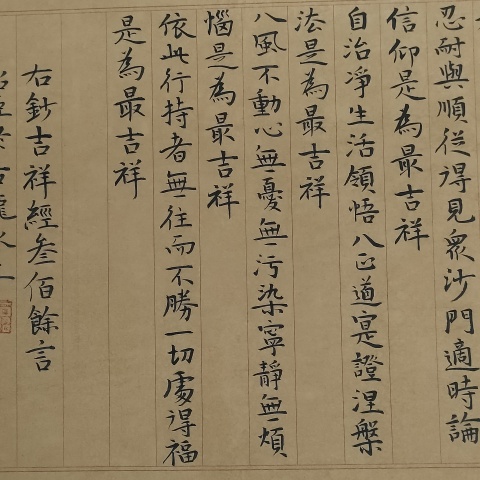 忍耐與順從得見眾沙門適時論
信仰是為最吉祥
自治凈生活領悟八正道寔證涅槃
法是為最吉祥
八風不動心無憂無污染寧靜無煩
惱是為最吉祥
依此行持者無往而不勝一切處得福
是為最吉祥
右鈔吉祥經叄佰餘言